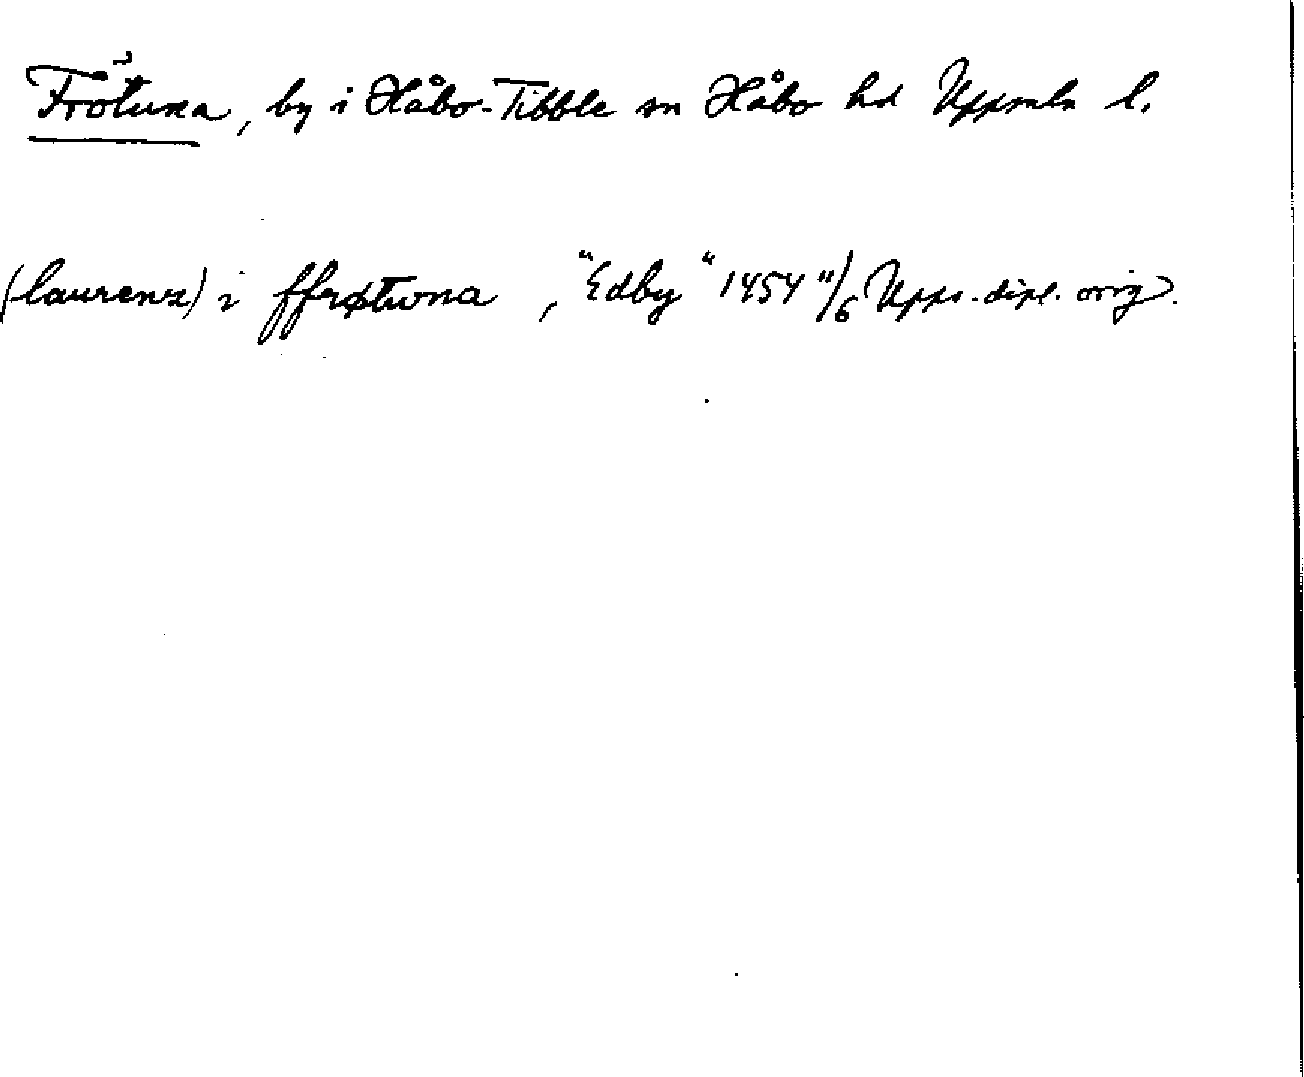 Frötuna, by i Håbo-Tibble sn Håbo hd Uppsala l.
(laurenz) i ffrøtwna, "Edby" 1454 11/6 Upps. dipl. orig.